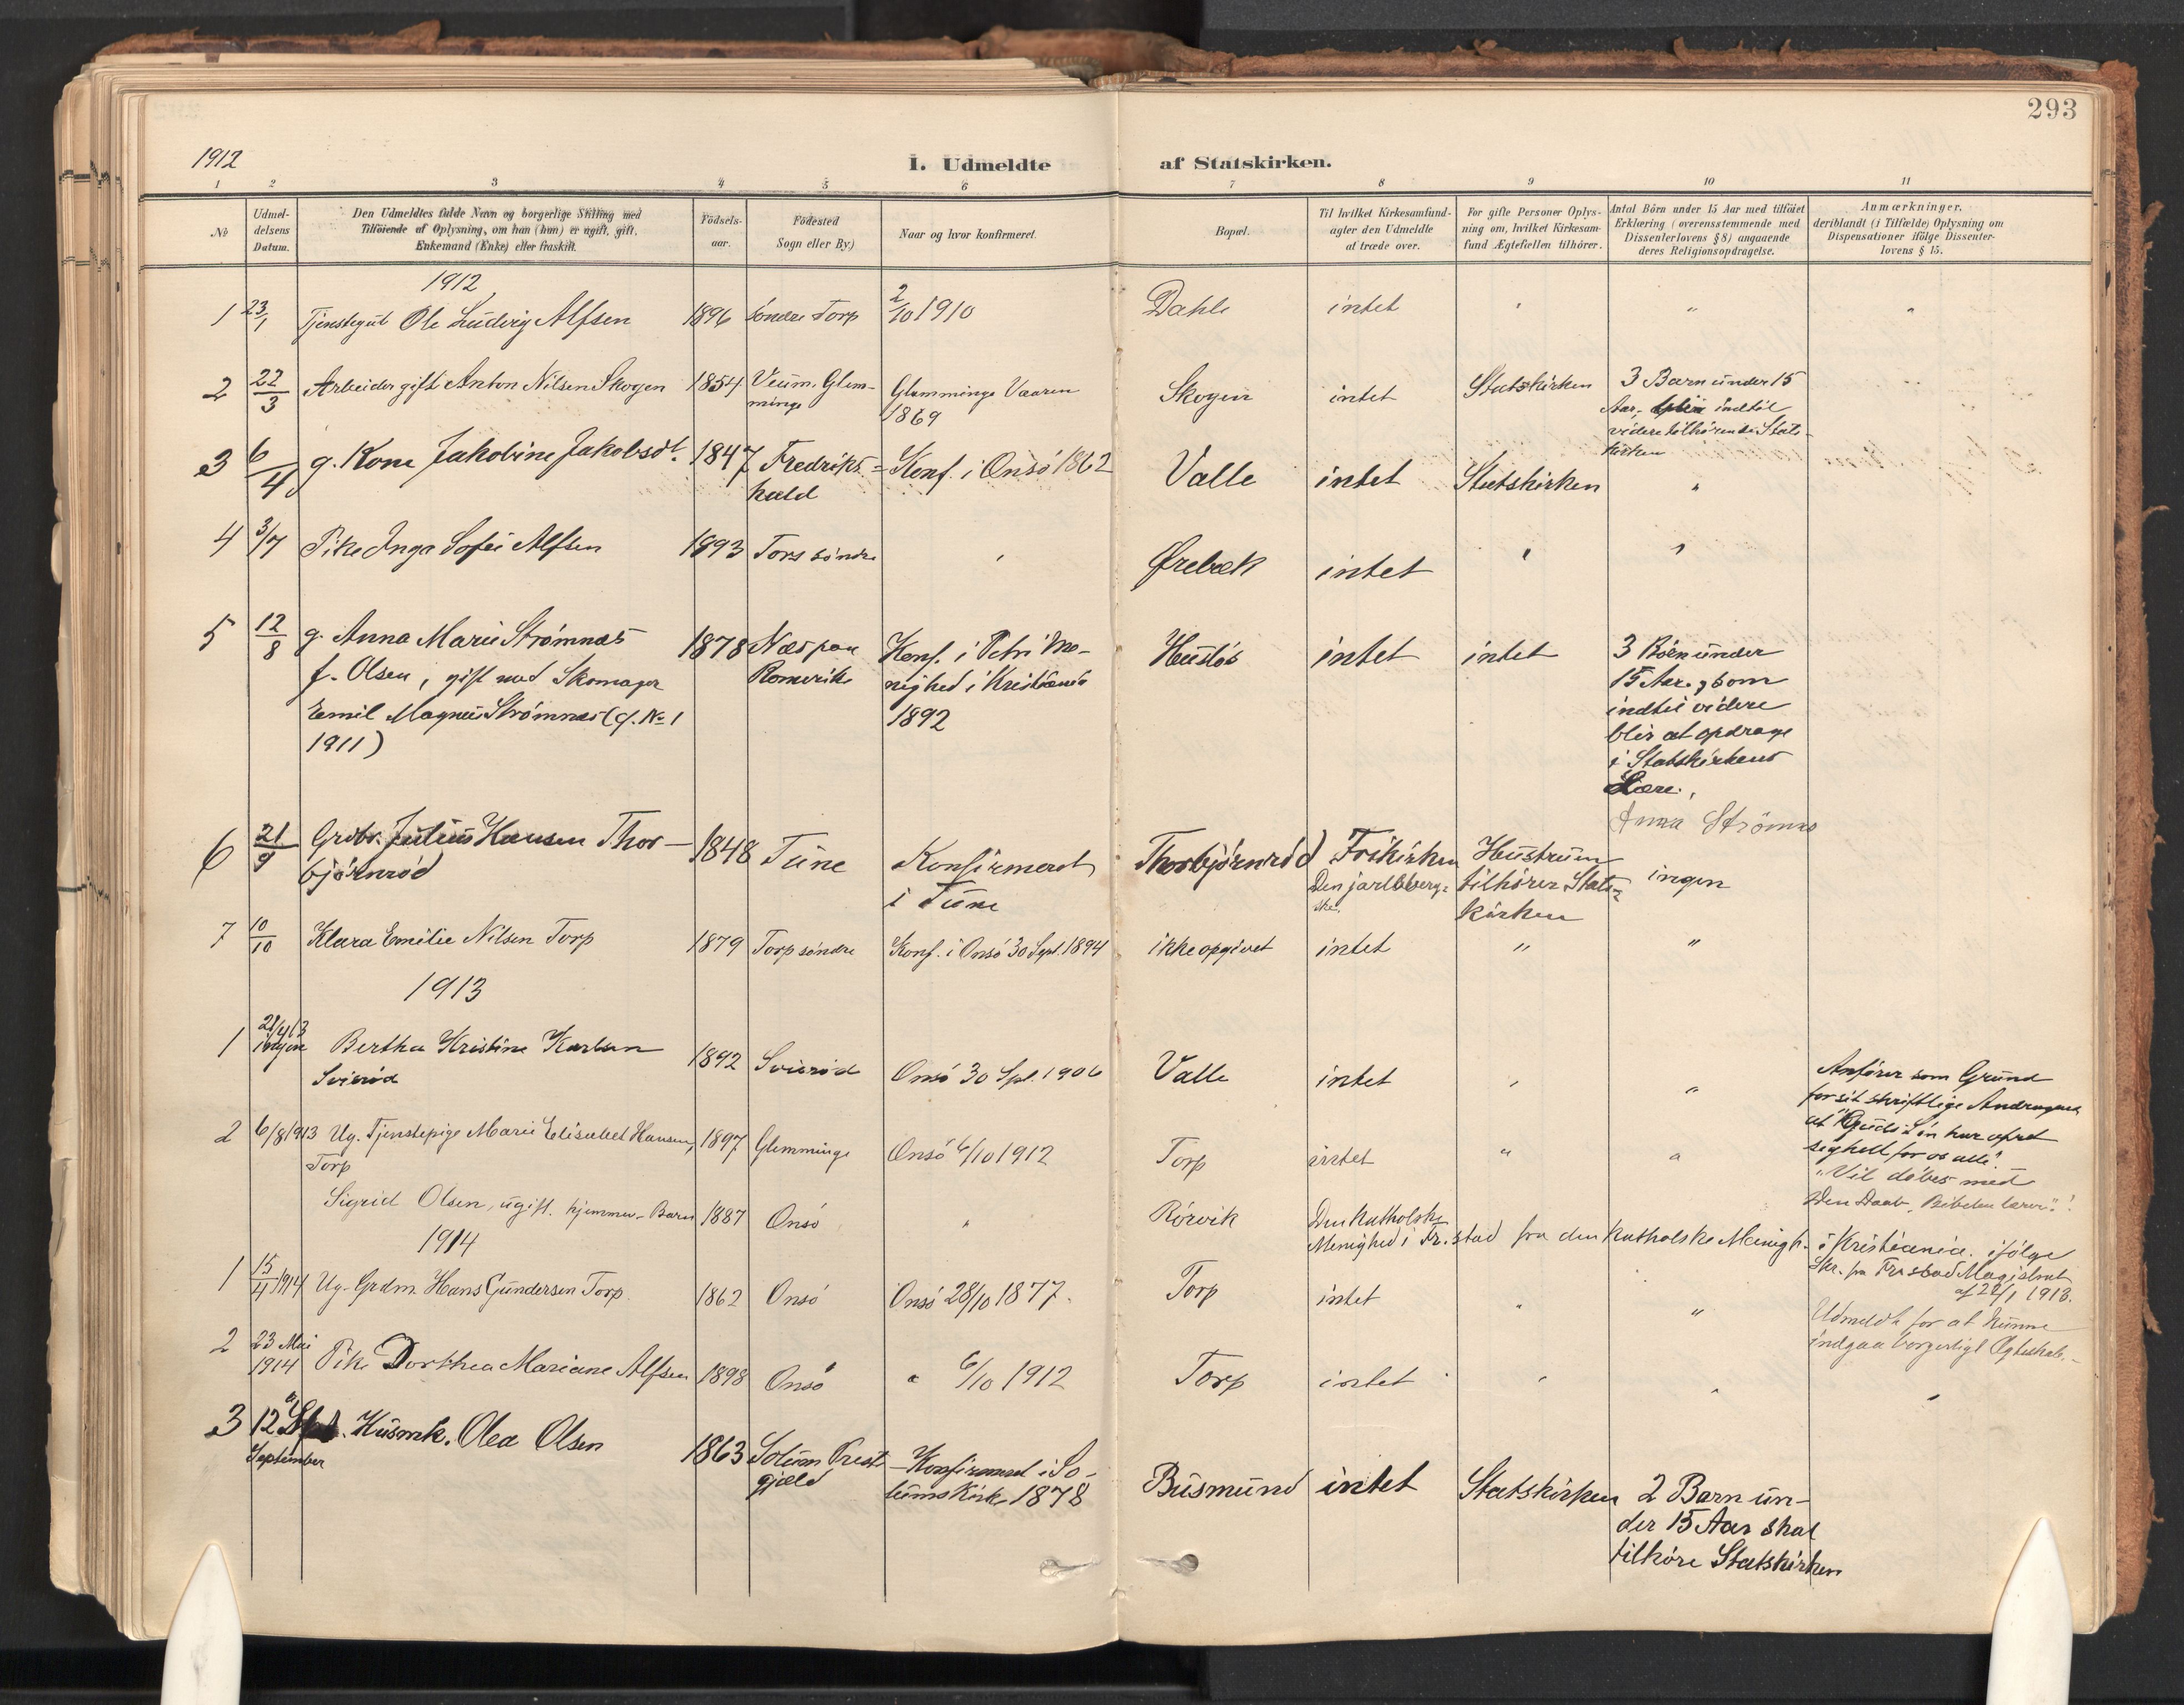 293
1912
I. Udmeldte af Statskirken.
1 2 3 4 5 6 7 8 9 10 11
No
Udmel-
delsens
Datum.
Den Udmeldtes fulde Navn og borgerlige Stilling med
Tilføiende af Oplysning, om han (hun) er ugift, gift,
Enkemand (Enke) eller fraskilt.
Födsels-
aar.
Födested
Sogn eller By)
Naar og hvor konfirmeret.
Bopæl.
Til hvilket Kirkesamfund-
agter den Udmeldte
at træde over.
For gifte Personer Oplys-
ning om, hvilket Kirkesam-
fund Ægtefællen tilhörer.
Antal Börn under 15 Aar med tilföiet
Erklæring (overensstemmende med
Dissenterlovens § 8) angaaende
deres Religionsopdragelse.
Anmærkninger,
deriblandt (i Tilfælde) Oplysning om
Dispensationer ifölge Dissenter-
lovens § 15.
1912
1 23/1 Tjenstegut Ole Ludvig Alfsen 1896 Söndre Torp 2/10 1910 Dahle intet " " "
2 22/3 Arbeider gift Anton Nilsen Skogen 1854 Veum, Glem-
minge
Glemminge Vaaren
1869
Skogen intet Statskirken 3 Barn under 15
Aar, indtil
videre tilhörende Stats-
kirken
3 6/4 g. Kone Jakobine Jakobsdt. 1847 Fredriks-
hald
Konf. i Onsö 1862 Valle intet Statskirken "
4 3/7 Pike Inga Sofie Alfsen 1893 Torp söndre " Ørebæk intet " "
5 12/8 g. Anna Marie Strömnæs
f. Olsen, gift med Skomager
Emil Magnus Strömnæs (cf. No 1
1911)
1878 Næs paa
Romerike
Konf. i Petri Me-
nighed i Kristiania
1892
Huslös intet intet 3 Börn under
15 Aar, som
indtil videre
blir at opdrage
i Statskirkens
Lære.
Anna Strömnæs
6 21/9 Grdbr. Julius Hansen Thor-
björnröd
1848 Tune Konfirmeret
i Tune
Thorbjörnröd Frikirken
Den jarlsberg-
ske.
Hustruen
tilhörer Stats-
kirken
ingen
7 10/10 Klara Emilie Nilsen Torp 1879 Torp söndre Konf. i Onsö 30 Sept. 1894 ikke opgivet intet " "
1913
1 21/4 13 Bertha Kristine Karlsen
Svieröd
1892 Svieröd Onsö 30 Spt. 1906 Valle intet " "
Anförer som Grund
for sit skriftlige Andragende
at "Guds Sön har ofret
sig helt for os alle".
"Vil döbes med
Den Daab, Bibelen lærer"!
2 6/8 1913 Ug. Tjenstepige Marie Elisabet Hansen,
Torp
1897 Glemminge Onsö 6/10 1912 Torp intet " "
Sigrid Olsen, ugift. hjemmev. Barn 1887 Onsö " Rörvik Den katholske
Menighed i Fr.stad fra den katholske Menigh. i Kristiania. ifölge
Skr. fra Fr.stad Magistrat
af 22/1 1913.
1914
1 15/4 1914 Ug. Grdm. Hans Gundersen Torp. 1862 Onsö Onsö 28/10 1877. Torp intet " "
Udmeldt for at kunne
indgaa borgerligt Ægteskab.
2 23 Mai
1914
Pike Dorthea Mariane Alfsen 1898 Onsö " 6/10 1912 Torp intet " " "
3 12
September
Husmk. Olea Olsen 1863 Solum Prest-
gjæld
Konfirmeret i So-
lums Kirke 1878
Busmund intet Statskirken 2 Barn un-
der 15 Aar skal
tilhöre Statskirken